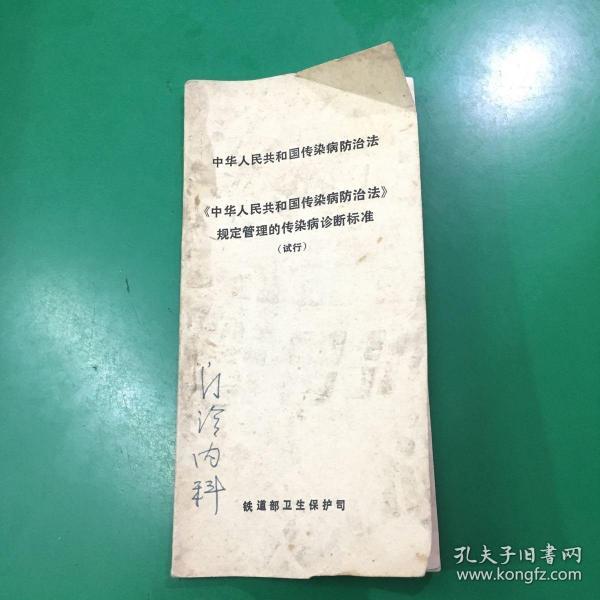 中华人民共和国传染病防治法
《中华人民共和国传染病防治法》
规定管理的传染病诊断标准
（试行）
门诊内科
铁道部卫生保护司
孔夫子旧書网
www.kongfz.com